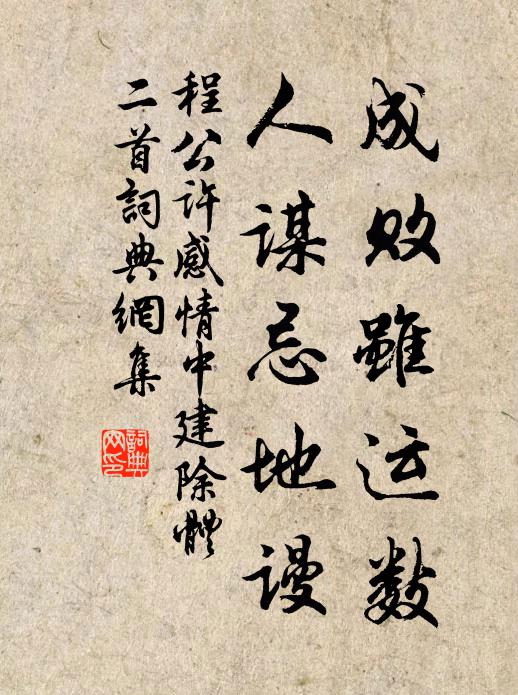 成败雖运数
人谋忌地谩
程公许感情中建除體
二首詞典網集
詞典网印